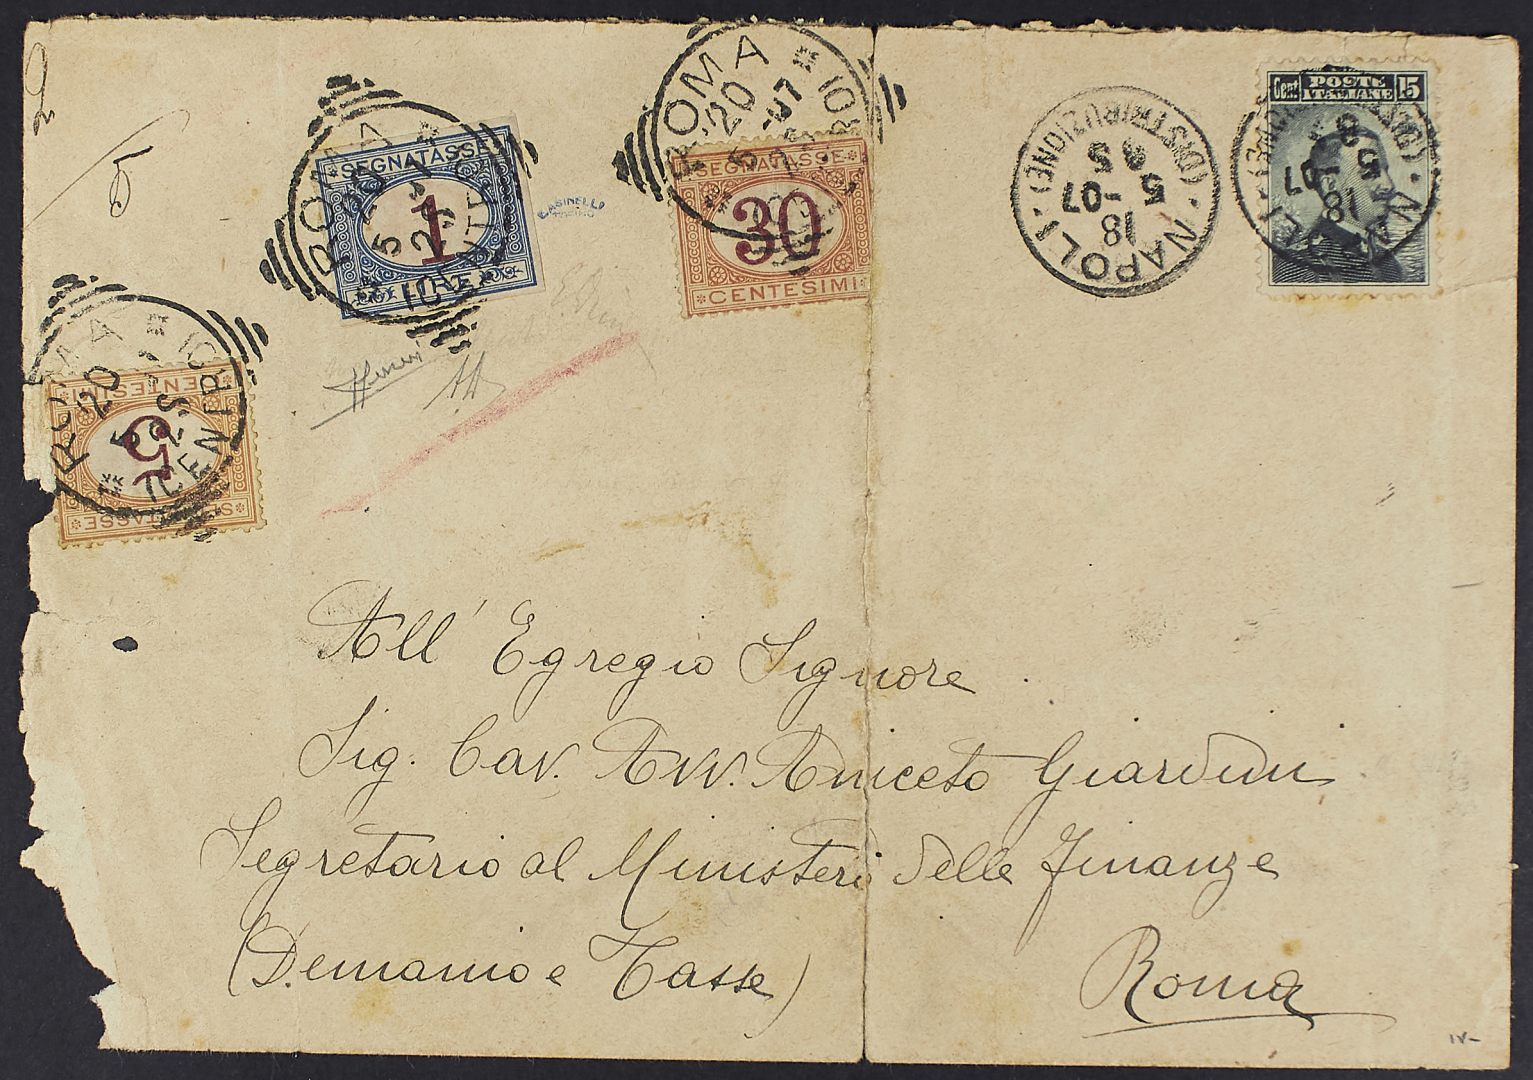 ROMA
20
5 - 07
SEGNATASSE
30
CENTESIMI
ROMA
20
5
SEGNATASSE
1
LIRE
ROMA
20
5
CENTRO
CENTESIMI
5
NAPOLI
(DISTRIBUZIONE)
18
5 - 07
8 S
Cent. POSTE ITALIANE 15
NAPOLI
18
5
All' Egregio Signore
Sig. Cav. Avv. Aniceto Giardini
Segretario al Ministero delle Finanze
(Demanio e Tasse)
Roma